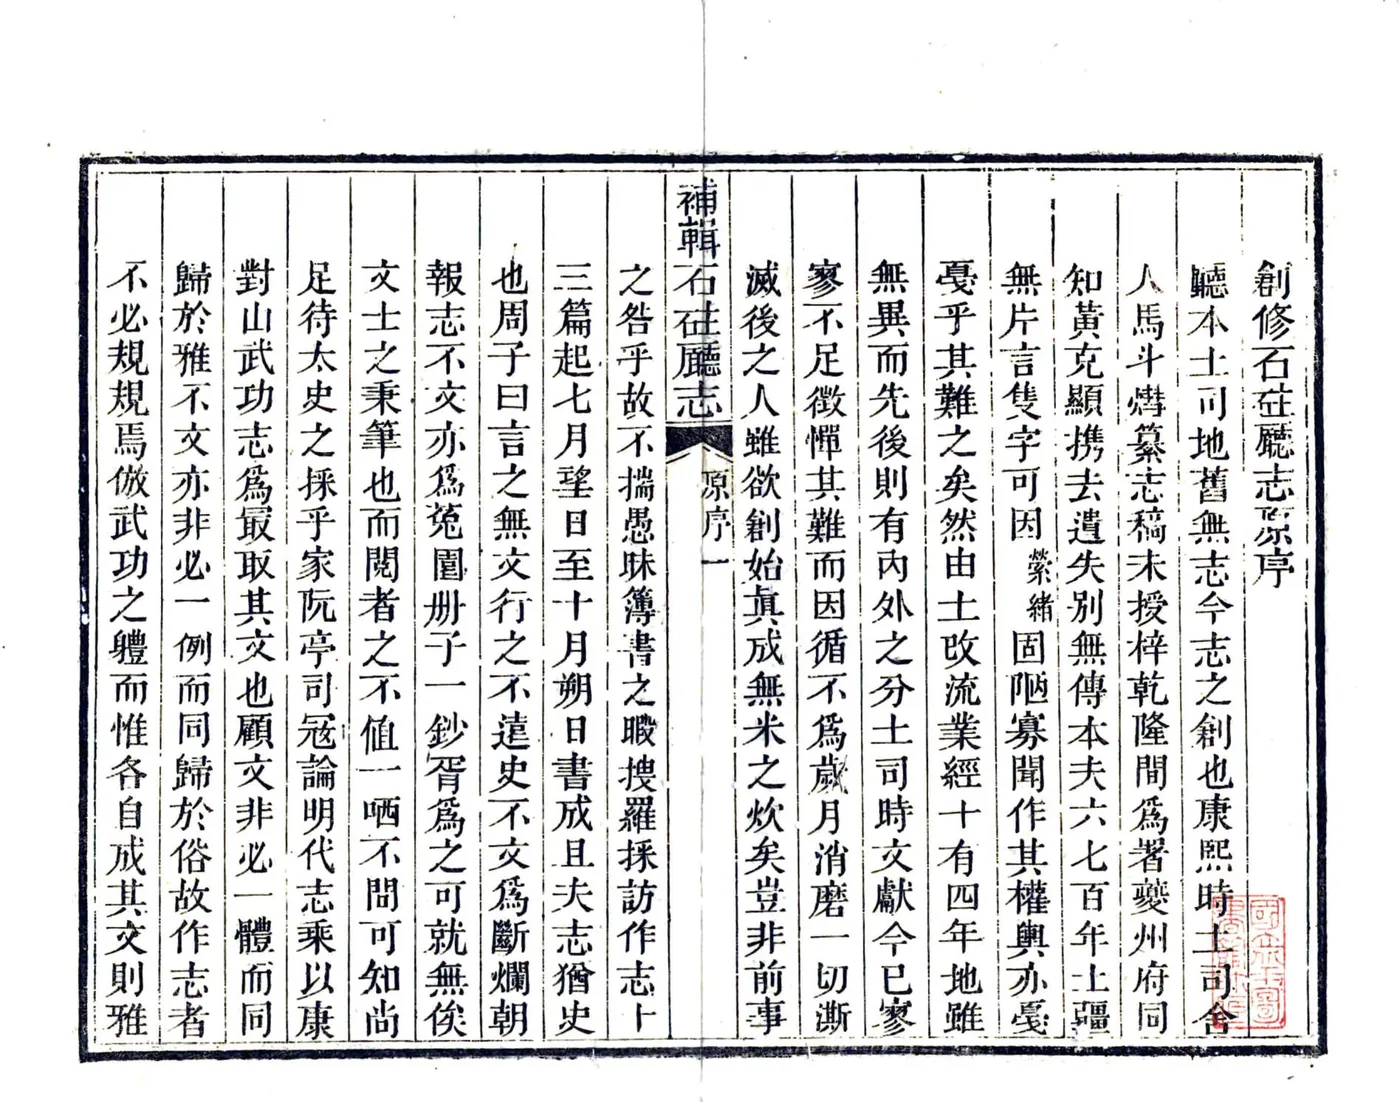 創修石砫廳志原序
廳本土司地舊無志今志之創也康熙時土司舍
人馬斗㷆纂志稿未授梓乾隆間爲署夔州府同
知黃克顯携去遺失別無傳本夫六七百年土疆
無片言隻字可因縈緒固陋寡聞作其權輿亦戞
戞乎其難之矣然由土改流業經十有四年地雖
無異而先後則有內外之分土司時文獻今已寥
寥不足徵憚其難而因循不爲歲月消磨一切澌
滅後之人雖欲創始眞成無米之炊矣豈非前事
補輯石砫廳志
原序
一
之咎乎故不揣愚昧簿書之暇捜羅採訪作志十
三篇起七月望日至十月朔日書成且夫志猶史
也周子曰言之無文行之不遠史不文爲斷爛朝
報志不文亦爲菟園册子一鈔胥爲之可就無俟
文士之秉筆也而閱者之不值一哂不問可知尚
足待太史之採乎家阮亭司冦論明代志乘以康
對山武功志爲最取其文也顧文非必一體而同
歸於雅不文亦非必一例而同歸於俗故作志者
不必規規焉倣武功之軆而惟各自成其文則雅